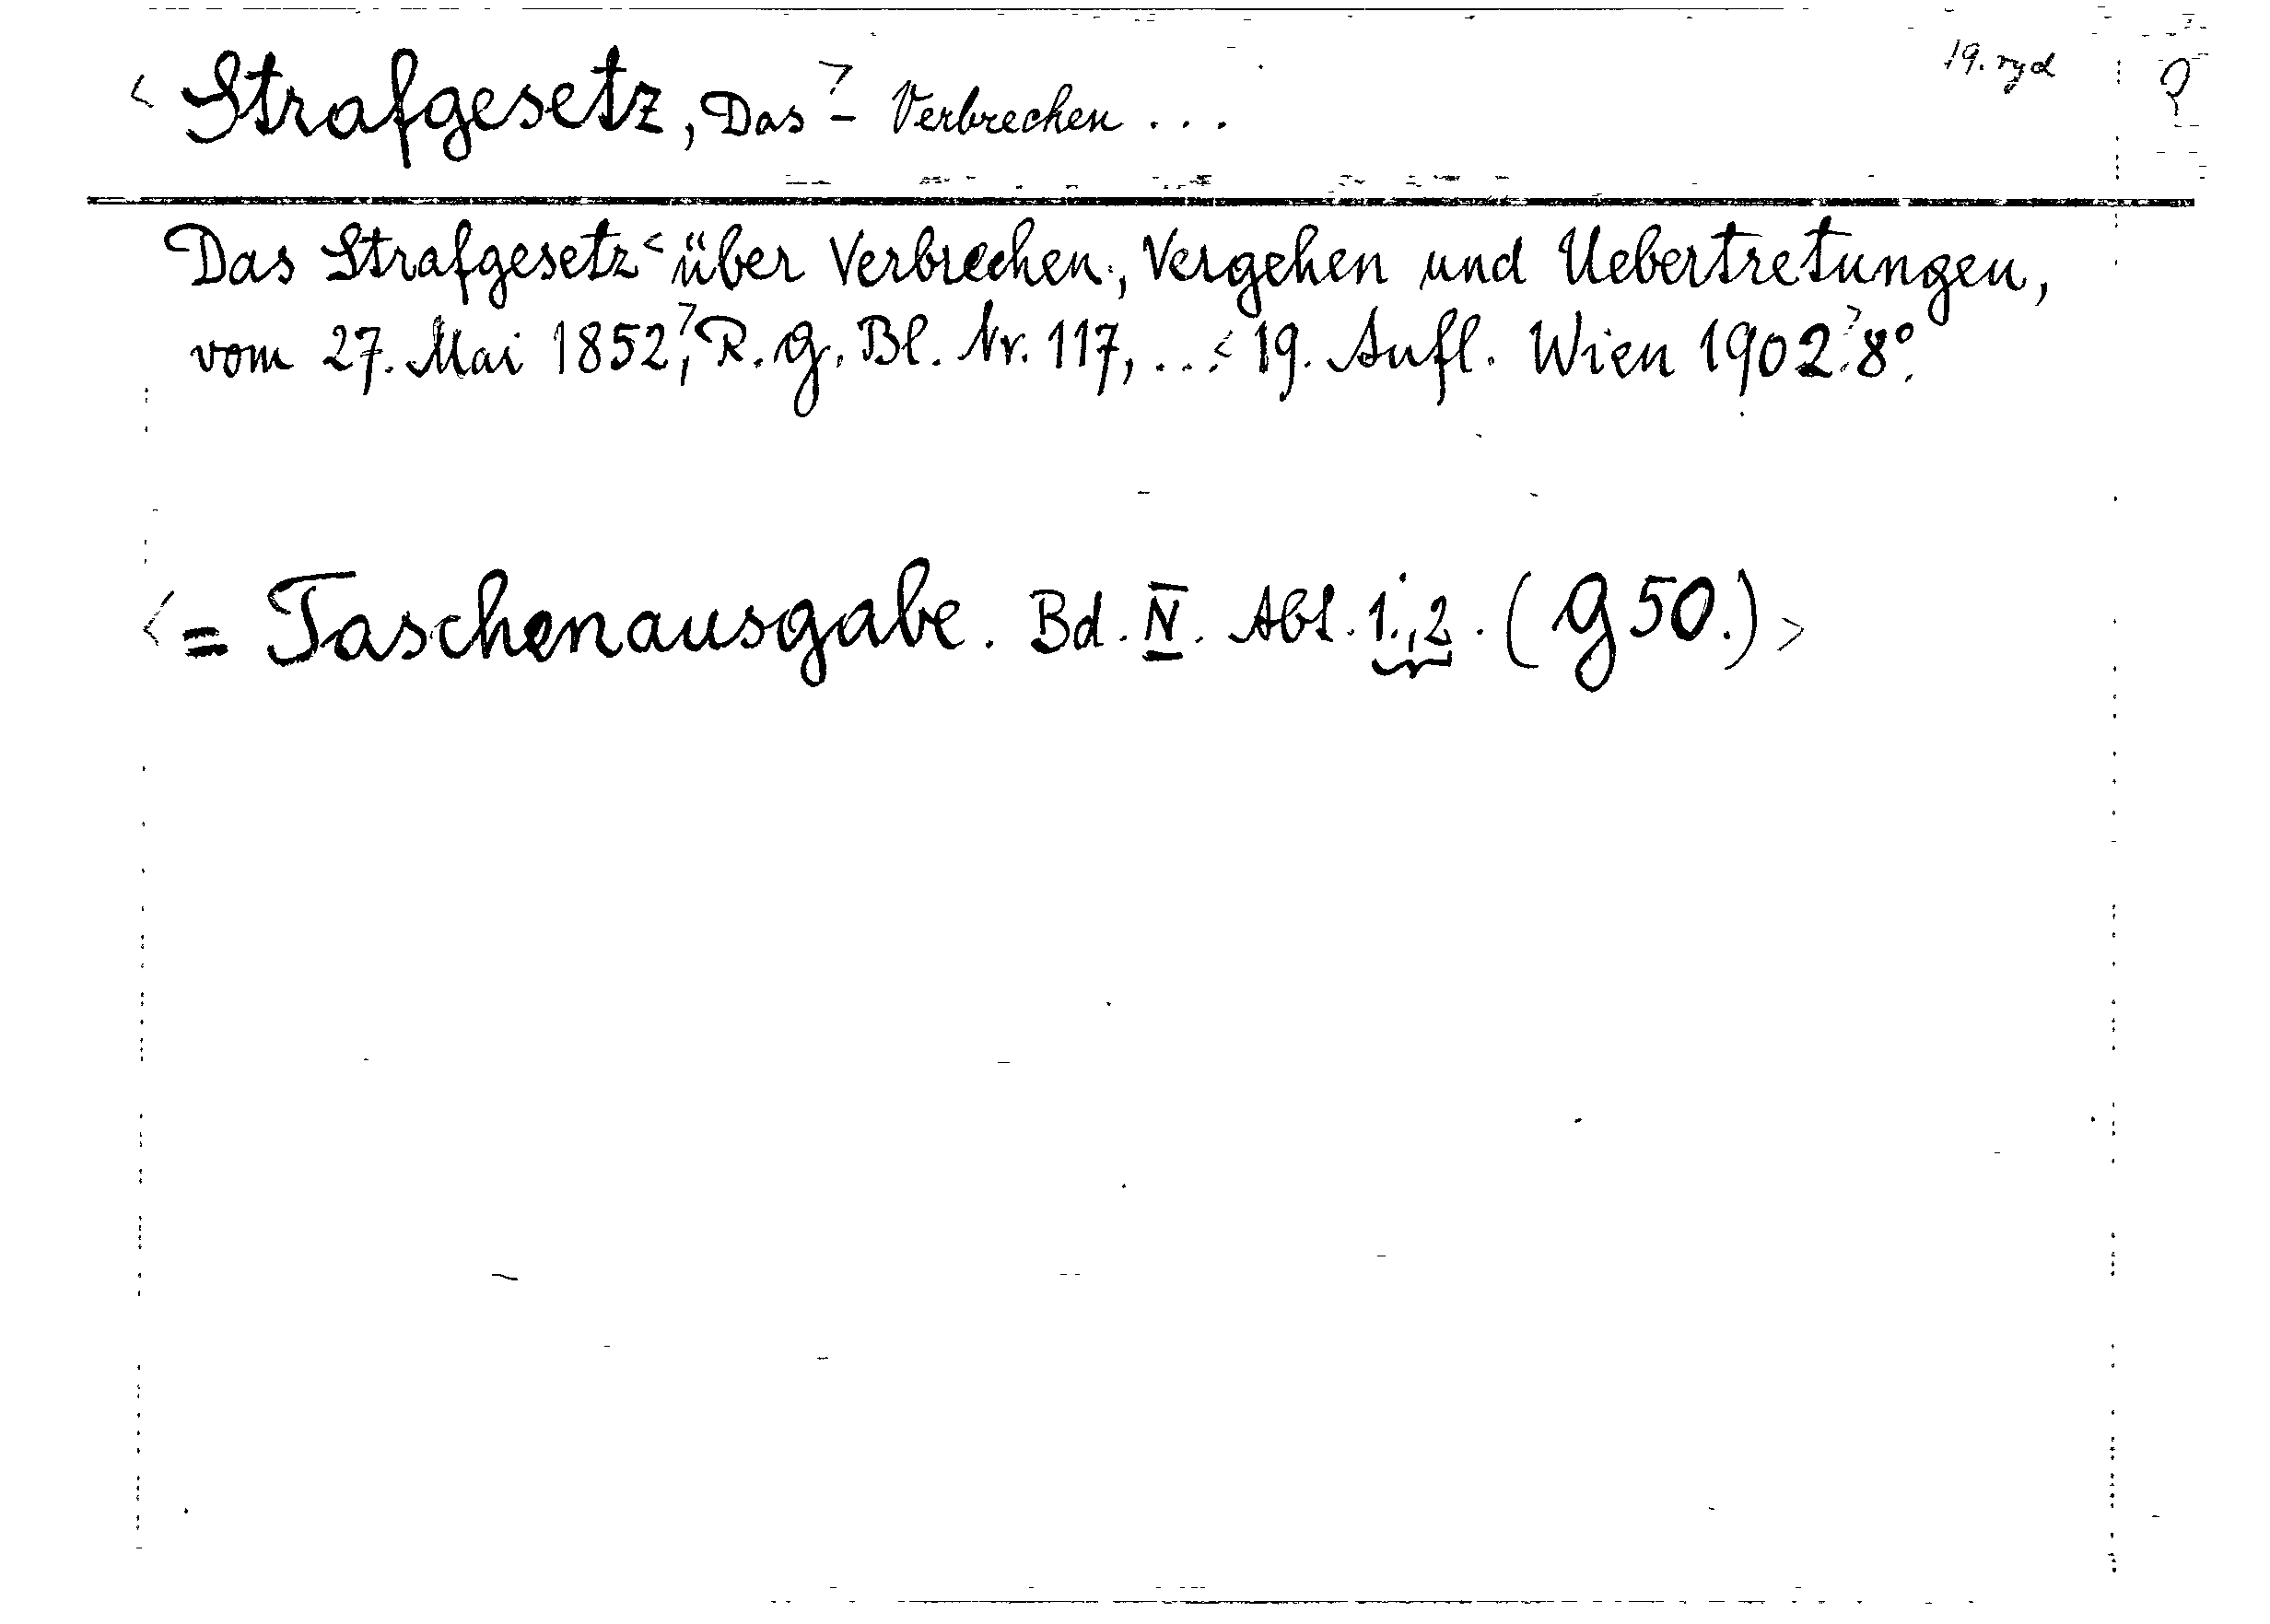 19. vyd
< Strafgesetz, Das > - Verbrechen ...
Das Strafgesetz < über Verbrechen, Vergehen und Uebertretungen,
vom 27. Mai 1852, > R. G. Bl. Nr. 117, ... < 19. Aufl. Wien 1902. > 8°.
< = Taschenausgabe. Bd. IV. Abt. 1., 2. (G 50.) >